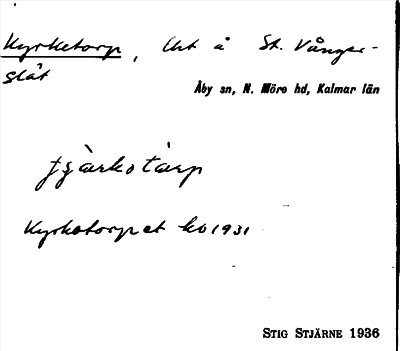 Kyrketorp, Urt å St. Vånger-
slät
Åby sn, N. Möre hd, Kalmar län
Kyrketorpet ko 1931
STIG STJÄRNE 1936